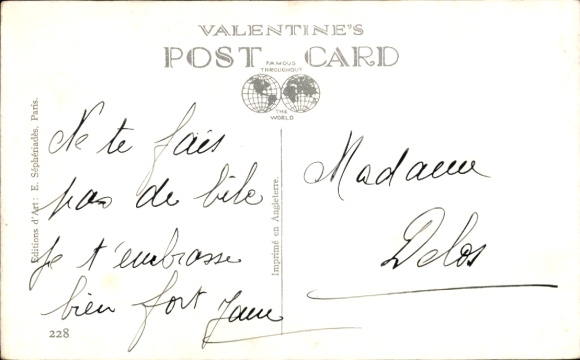 VALENTINE'S
POST CARD
FAMOUS
THROUGHOUT
THE
WORLD
Editions d'Art: E. Séphériadès, Paris.
Imprimé en Angleterre.
Ne te fais
pas de bile
je t'embrasse
bien fort
Madame
Delos
228